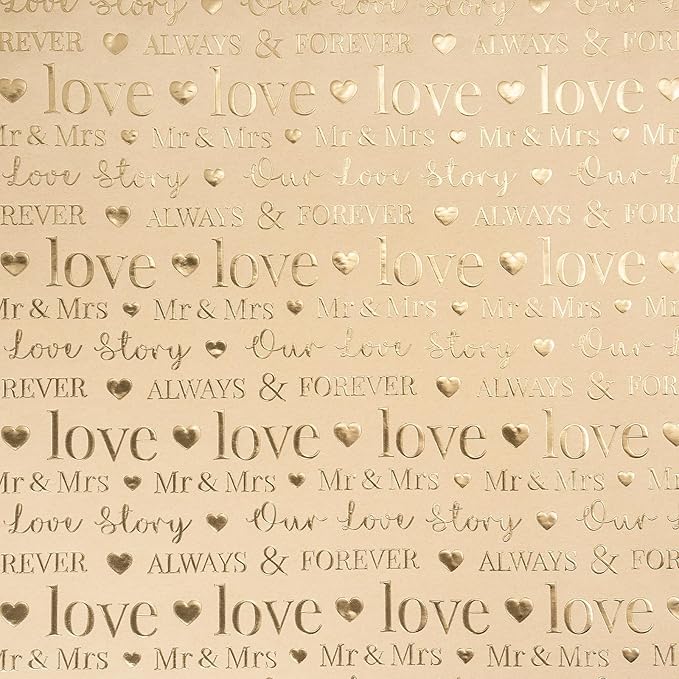 Love Story ♥ Our Love Story ♥ Our Love
FOREVER ♥ ALWAYS & FOREVER ♥ ALWAYS & FOREVER
♥ love ♥ love ♥ love ♥ love ♥
Mr & Mrs ♥ Mr & Mrs ♥ Mr & Mrs ♥ Mr & Mrs ♥ Mr
Love Story ♥ Our Love Story ♥ Our Love
REVER ♥ ALWAYS & FOREVER ♥ ALWAYS & FOREV
♥ love ♥ love ♥ love ♥ love ♥
Mr & Mrs ♥ Mr & Mrs ♥ Mr & Mrs ♥ Mr & Mrs ♥ M
Love Story ♥ Our Love Story ♥ Our Love
REVER ♥ ALWAYS & FOREVER ♥ ALWAYS & FOREV
♥ love ♥ love ♥ love ♥ love ♥
Mr & Mrs ♥ Mr & Mrs ♥ Mr & Mrs ♥ Mr & Mrs ♥ M
Love Story ♥ Our Love Story ♥ Our Love
REVER ♥ ALWAYS & FOREVER ♥ ALWAYS & FOREV
♥ love ♥ love ♥ love ♥ love ♥
Mr & Mrs ♥ Mr & Mrs ♥ Mr & Mrs ♥ Mr & Mrs ♥